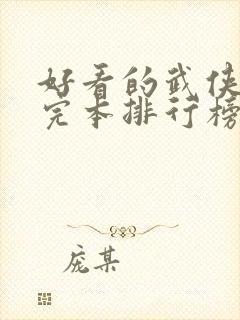 好看的武侠
完本排行榜
庞某